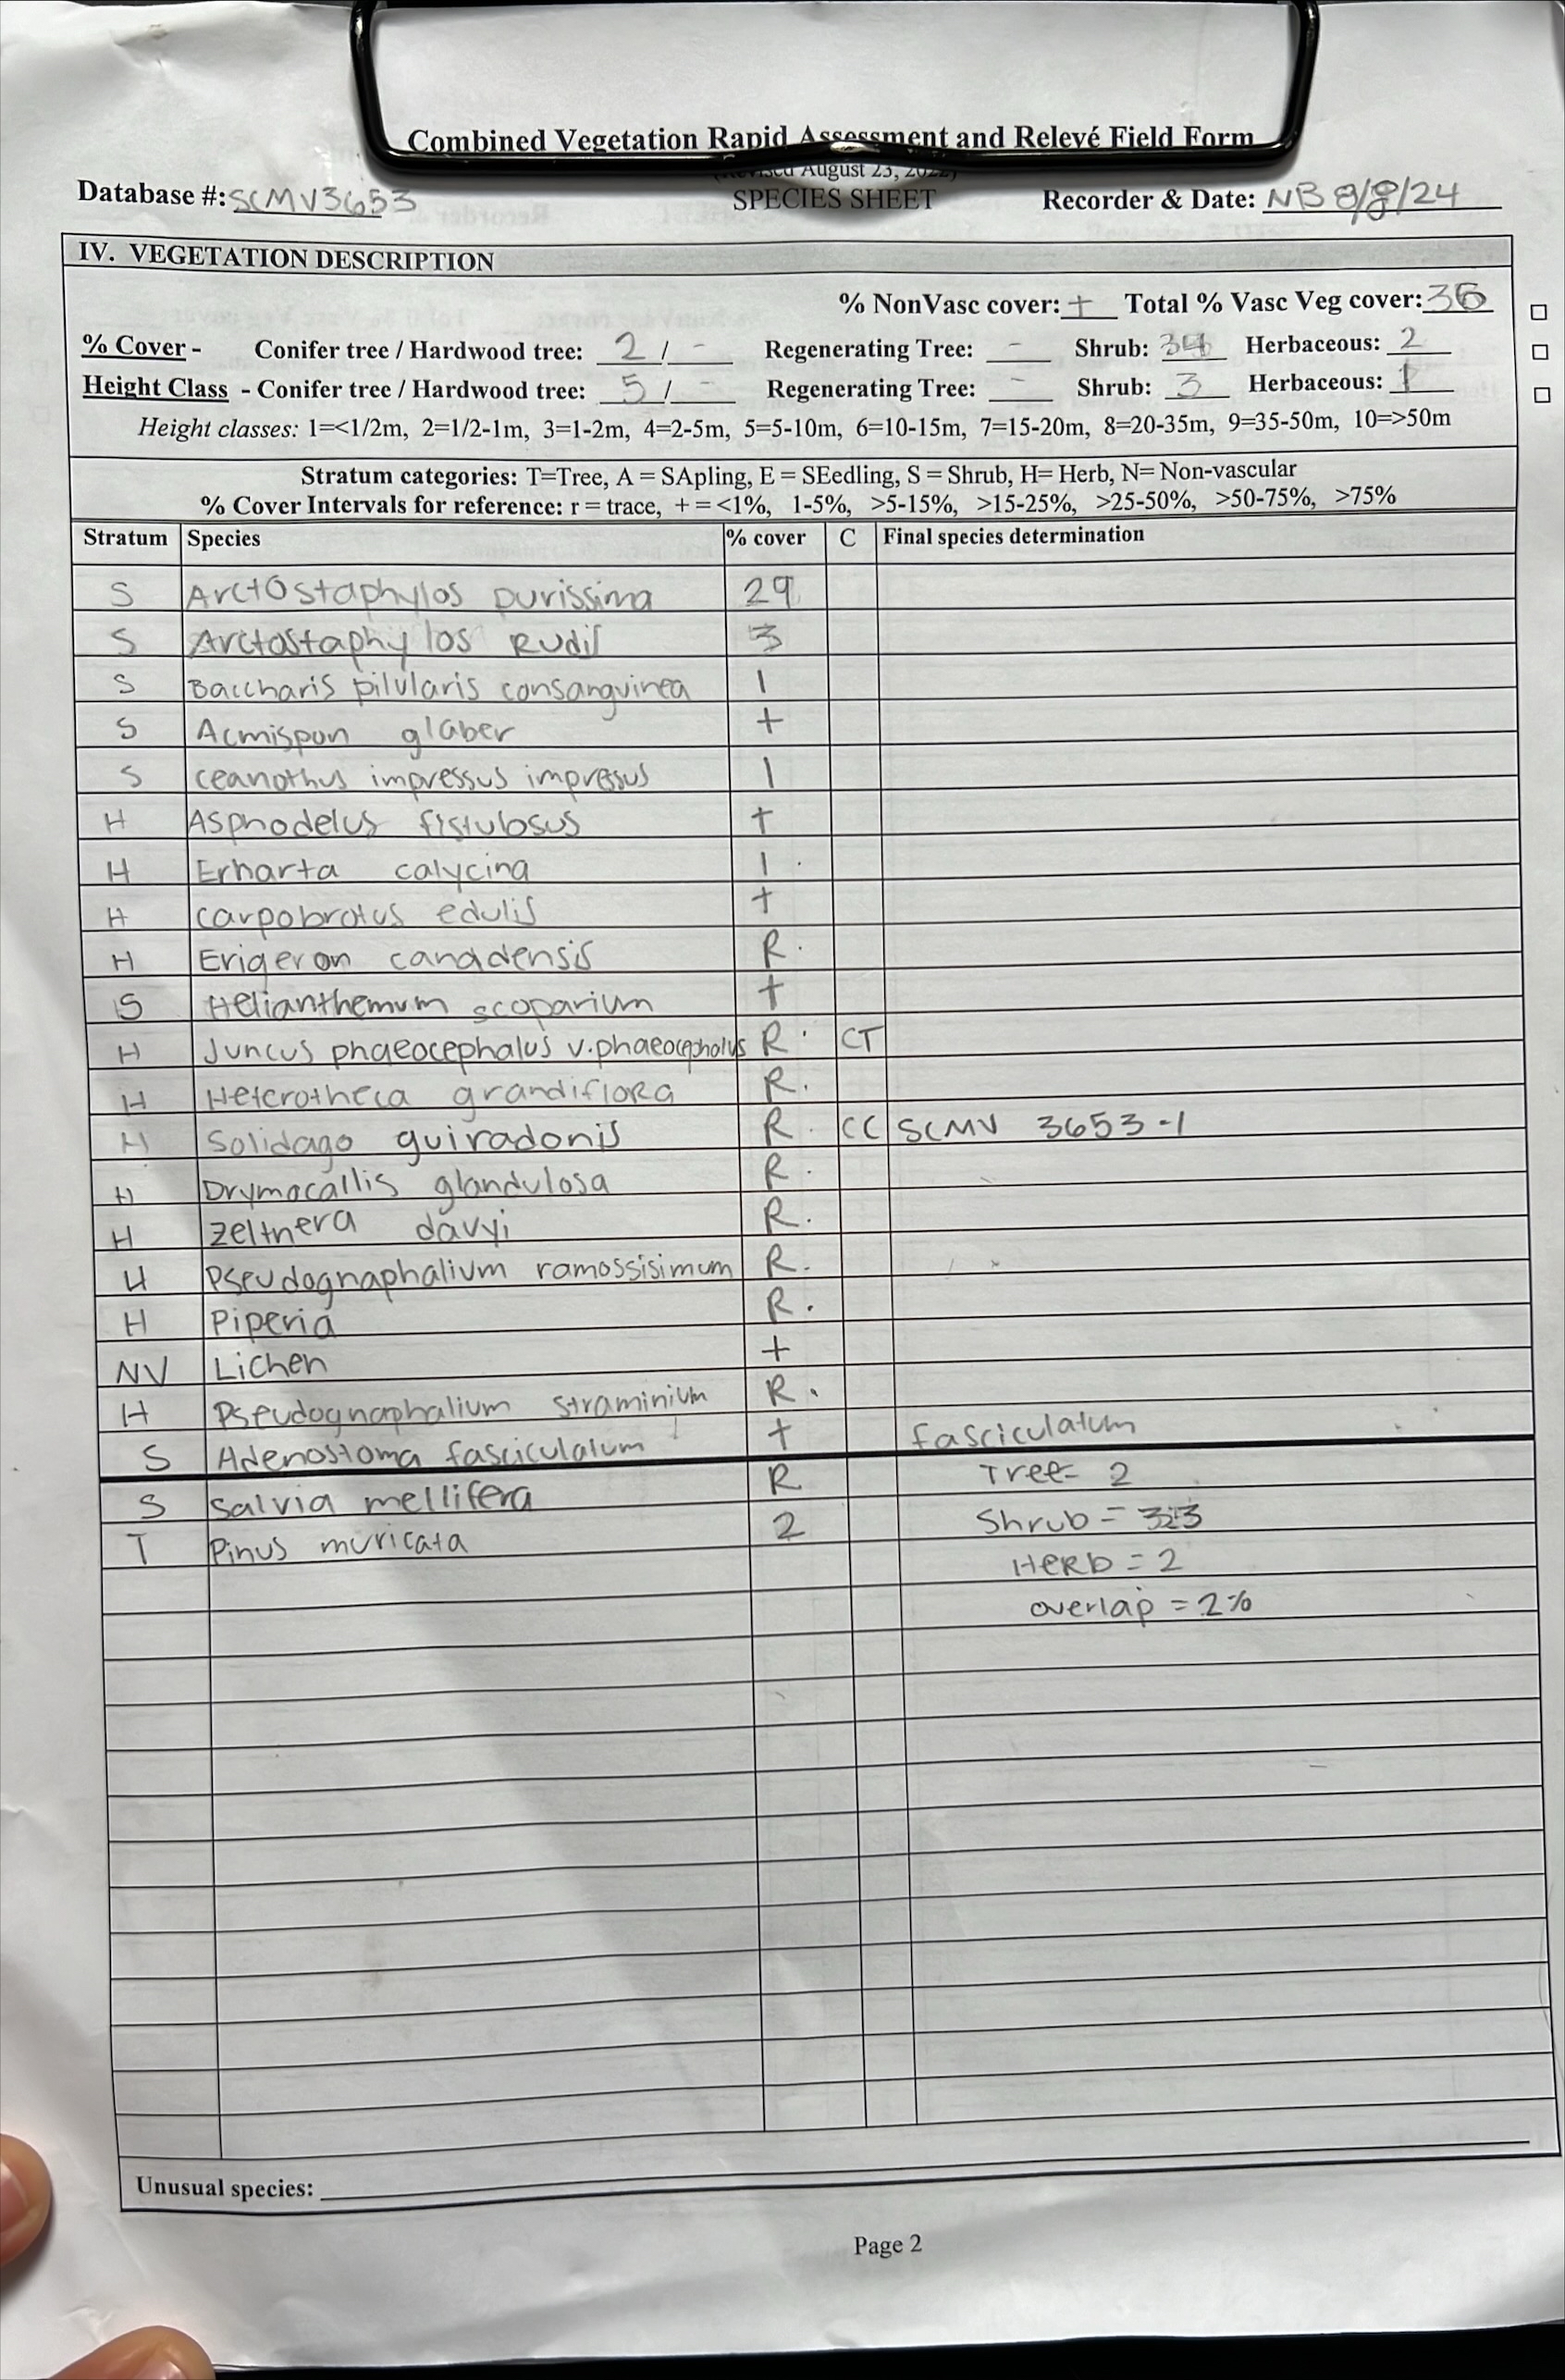 Combined Vegetation Rapid Assessment and Relevé Field Form
August 23, 2022)
Database #: SCMV3653 SPECIES SHEET Recorder & Date: NB 8/8/24
IV. VEGETATION DESCRIPTION
% NonVasc cover: + Total % Vasc Veg cover: 36
% Cover - Conifer tree / Hardwood tree: 2 / - Regenerating Tree: - Shrub: 34 Herbaceous: 2
Height Class - Conifer tree / Hardwood tree: 5 / - Regenerating Tree: - Shrub: 3 Herbaceous: 1
Height classes: 1=<1/2m, 2=1/2-1m, 3=1-2m, 4=2-5m, 5=5-10m, 6=10-15m, 7=15-20m, 8=20-35m, 9=35-50m, 10=>50m
Stratum categories: T=Tree, A = SApling, E = SEedling, S = Shrub, H= Herb, N= Non-vascular
% Cover Intervals for reference: r = trace, + = <1%, 1-5%, >5-15%, >15-25%, >25-50%, >50-75%, >75%
Stratum Species % cover C Final species determination
S Arctostaphylos purissima 29
S Arctostaphylos Rudis 3
S Baccharis pilularis consanguinea 1
S Acmispon glaber +
S ceanothus impressus impressus 1
H Asphodelus fistulosus +
H Erharta calycina 1
H carpobrotus edulis +
H Erigeron canadensis R
S Helianthemum scoparium +
H Juncus phaeocephalus v. phaeocepholus R CT
H Heterotheca grandiflora R.
H Solidago guiradonis R CC SCMV 3653-1
H Drymocallis glandulosa R
H zeltnera davyi R.
H Pseudognaphalium ramossisimum R.
H Piperia R.
NV Lichen +
H Pseudognaphalium straminium R.
S Adenostoma fasciculatum + fasciculatum
S Salvia mellifera R Tree- 2
T Pinus muricata 2 Shrub =
Herb = 2
overlap = 2%
Unusual species:
Page 2